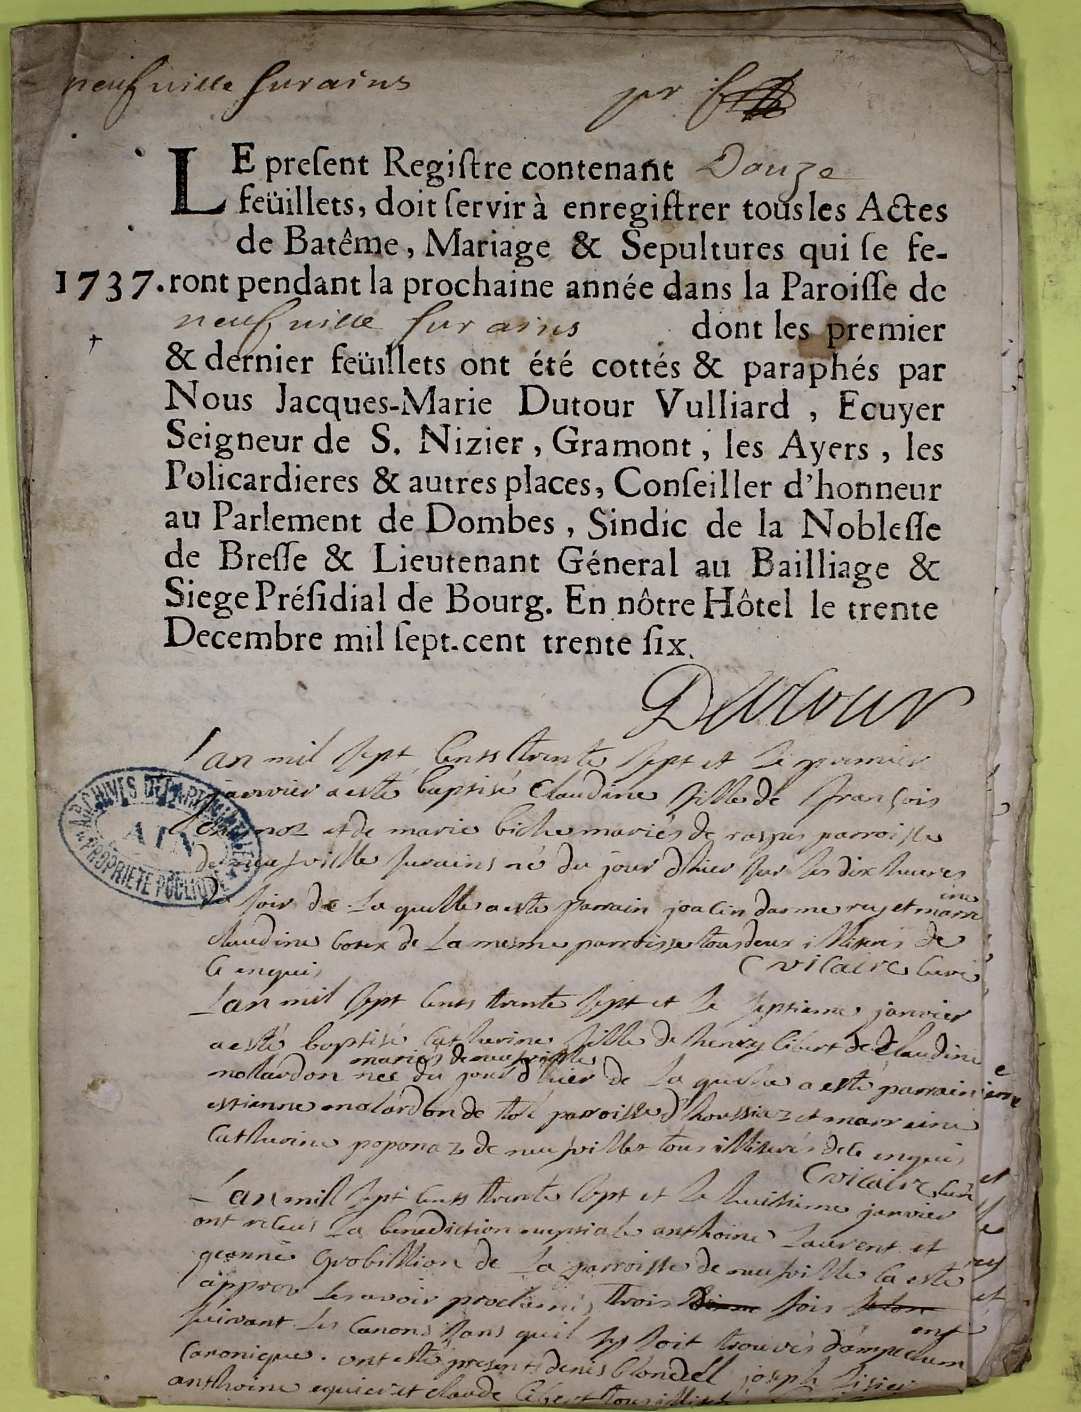 neufville surains
LE present Registre contenant Douze
feüillets, doit servir à enregistrer tous les Actes
de Batême, Mariage & Sepultures qui se fe-
1737. ront pendant la prochaine année dans la Paroisse de
neufville surains dont les premier
& dernier feüillets ont été cottés & paraphés par
Nous Jacques-Marie Dutour Vulliard, Ecuyer
Seigneur de S. Nizier, Gramont, les Ayers, les
Policardieres & autres places, Conseiller d'honneur
au Parlement de Dombes, Sindic de la Noblesse
de Bresse & Lieutenant Géneral au Bailliage &
Siege Présidial de Bourg. En nôtre Hôtel le trente
Decembre mil sept-cent trente six.
Dutour
Lan mil sept cents trente sept et le premier
janvier a esté baptisé Claudine fille de françois
et de marie biche mariés de parroisse
de neufville surains né du jour dhier sur les dix heures
du soir de la quelle a esté parrain et marraine
claudine de la mesme parroisse tous deux illiterés de
ce enquis C vicaire curé
Lan mil sept cents trente sept et le septieme janvier
a esté baptisé Catherine fille de henry Cibert et de Claudine
mariés de neufville
molardon née du jour dhier de la quelle a esté parrain
estienne molardon de parroisse et marraine
Catherine poponaz de neufville tous illiterés de ce enquis
C vicaire curé
Lan mil sept cents trente sept et le huitieme janvier
ont receus la benediction nuptiale anthoine Laurent et
jeanne Grobillion de la parroisse de neufville
appres les avoir proclamés trois fois
suivant les Canons sans quil sy soit trouvés dampechem
ent
Canonique. ont esté presents denis blondel joseph
anthoine et claude Cibert tous
ARCHIVES DÉPARTEMENTALES
AIN
PROPRIÉTÉ PUBLIQUE